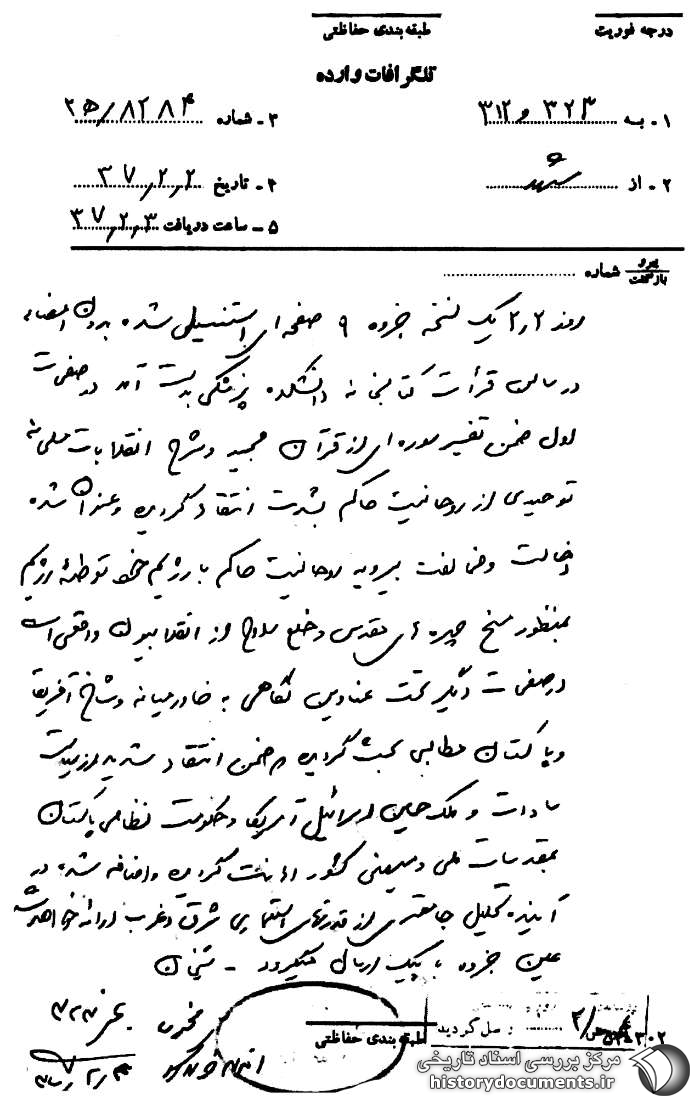 درجه فوریت
طبقه‌بندی حفاظتی
تلگرافات وارده
۱ - به ۳۲۳ و ۳۱۲
۳ - شماره ۲۵/۸۲۸۴
۲ - از مشهد
۴ - تاریخ ۳۷/۲/۲
۵ - ساعت دریافت ۳۷/۲/۳
پیرو
بازگشت
شماره
روز ۲/۲ یک نسخه جزوه ۹ صفحه‌ای استنسیلی شده بدون امضاء
در سالن قرائت کتابخانه دانشکده پزشکی بدست آمد در صفحات
اول ضمن تفسیر سوره‌ای از قرآن مجید و شرح انقلابات
توحیدی از روحانیت حاکم بشدت انتقاد گردیده و عنوان شده
مخالفت روحانیت حاکم با رژیم خط توطئه رژیم
بمنظور مسخ چهره‌های مقدس و خلع سلاح از انقلابیون واقعی است
در صفحات دیگر تحت عناوین نگاهی به خاورمیانه و شاخ آفریقا
و پاکستان مطالبی بحث گردیده و ضمن انتقاد شدید از
سادات و ملک حسین اسرائیل آمریکا و حکومت نظامی پاکستان
بمقدسات ملی و میهنی کشور اهانت گردیده و اضافه شده در
آینده تحلیل جامعتری از قدرتهای استعماری شرق و غرب ارائه خواهد شد
عین جزوه با پیک ارسال میگردد -
بخش ۳۲۳
طبقه‌بندی حفاظتی
رسل گردید
مرکز بررسی اسناد تاریخی
historydocuments.ir